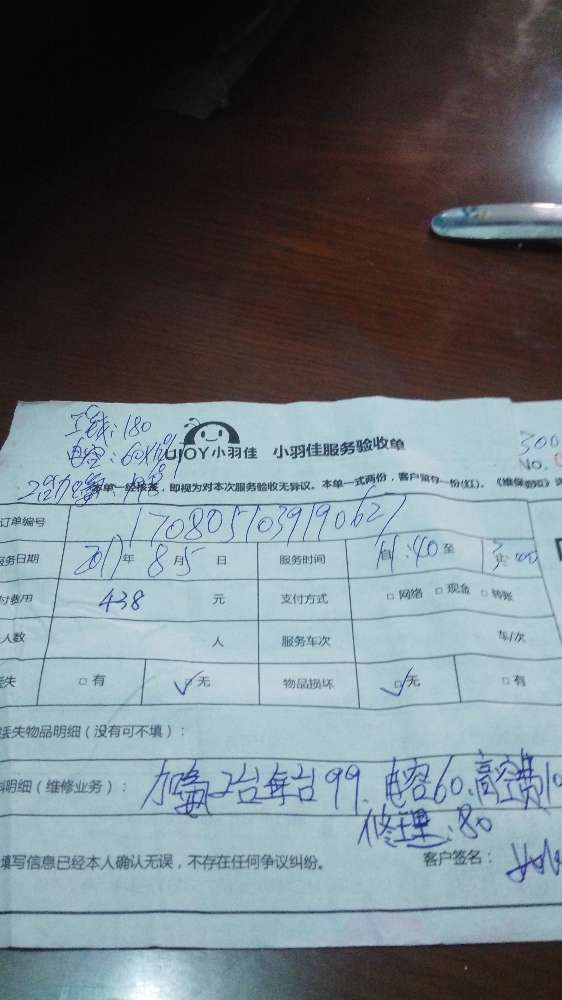 工钱:180
300
电容:60
UJOY小羽佳 小羽佳服务验收单
No.
2台加氟
即视为对本次服务验收无异议。本单一式两份,客户留存一份(红)。
订单编号 1708051039190627
服务日期 2017年 8月5日 服务时间 自11:40至13:00
付费用 438元 支付方式 □网络 □现金 □转账
人数 人 服务车次 车/次
丢失 □有 ☑无 物品损坏 ☑无 □有
丢失物品明细(没有可不填):
料明细(维修业务): 加氟2台每台99、电容60、高空费10
修理:80
填写信息已经本人确认无误,不存在任何争议纠纷。 客户签名: